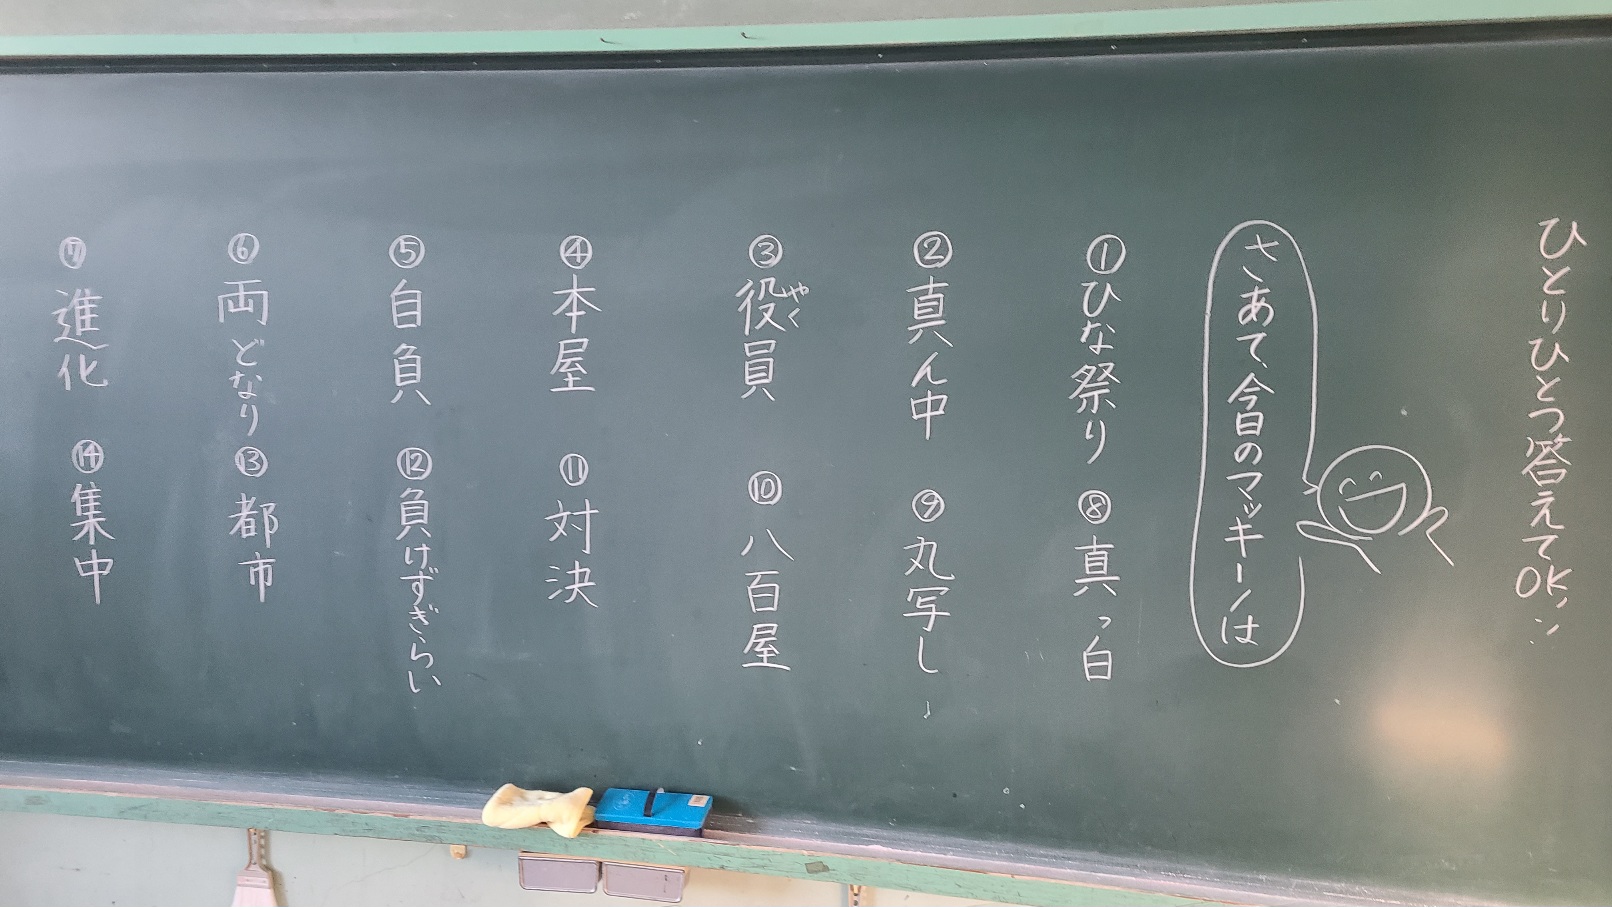 ひとりひとつ答えてOK!!
さあて、今日のマッキーノは
①ひな祭り
②真ん中
③役員
やく
④本屋
⑤自負
⑥両どなり
⑦進化
⑧真っ白
⑨丸写し
⑩八百屋
⑪対決
⑫負けずぎらい
⑬都市
⑭集中